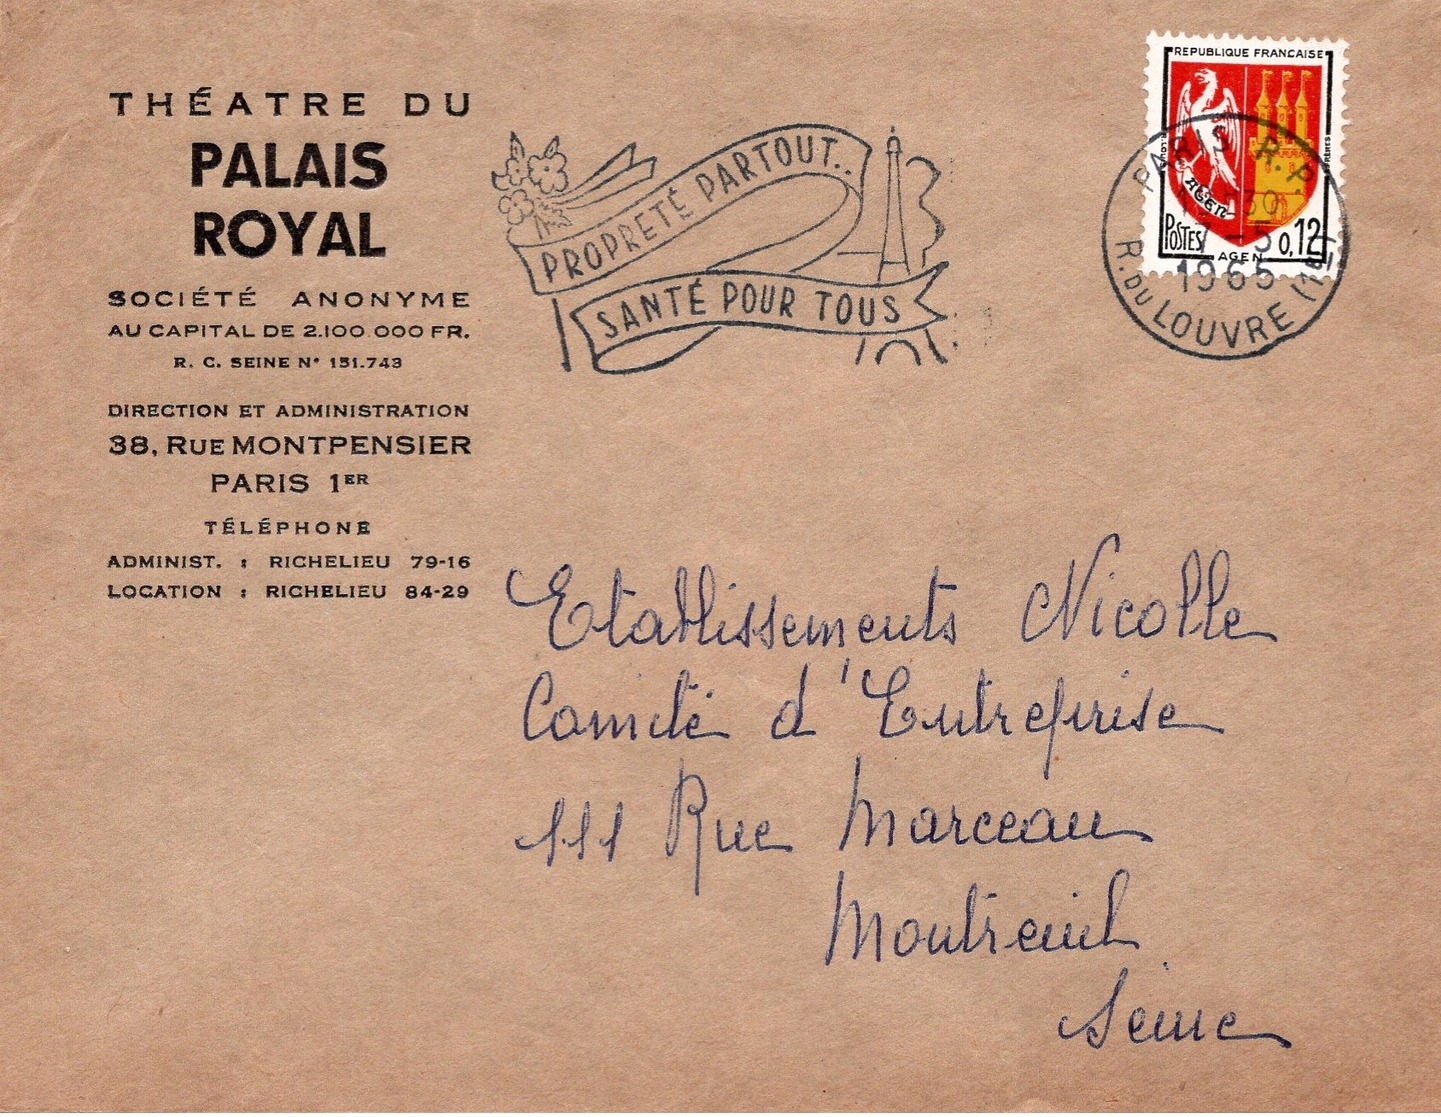 THÉATRE DU
PALAIS
ROYAL
SOCIÉTÉ ANONYME
AU CAPITAL DE 2.100.000 FR.
R. C. SEINE N° 151.743
DIRECTION ET ADMINISTRATION
38, RUE MONTPENSIER
PARIS 1ER
TÉLÉPHONE
ADMINIST. : RICHELIEU 79-16
LOCATION : RICHELIEU 84-29
PROPRETÉ PARTOUT..
SANTÉ POUR TOUS
REPUBLIQUE FRANÇAISE
AGEN
POSTES 0,12
AGEN
PARIS R.P.
1965
R. DU LOUVRE (1er)
Etablissements Nicolle
Comité d'Entreprise
111 Rue Marceau
Montreuil
Seine